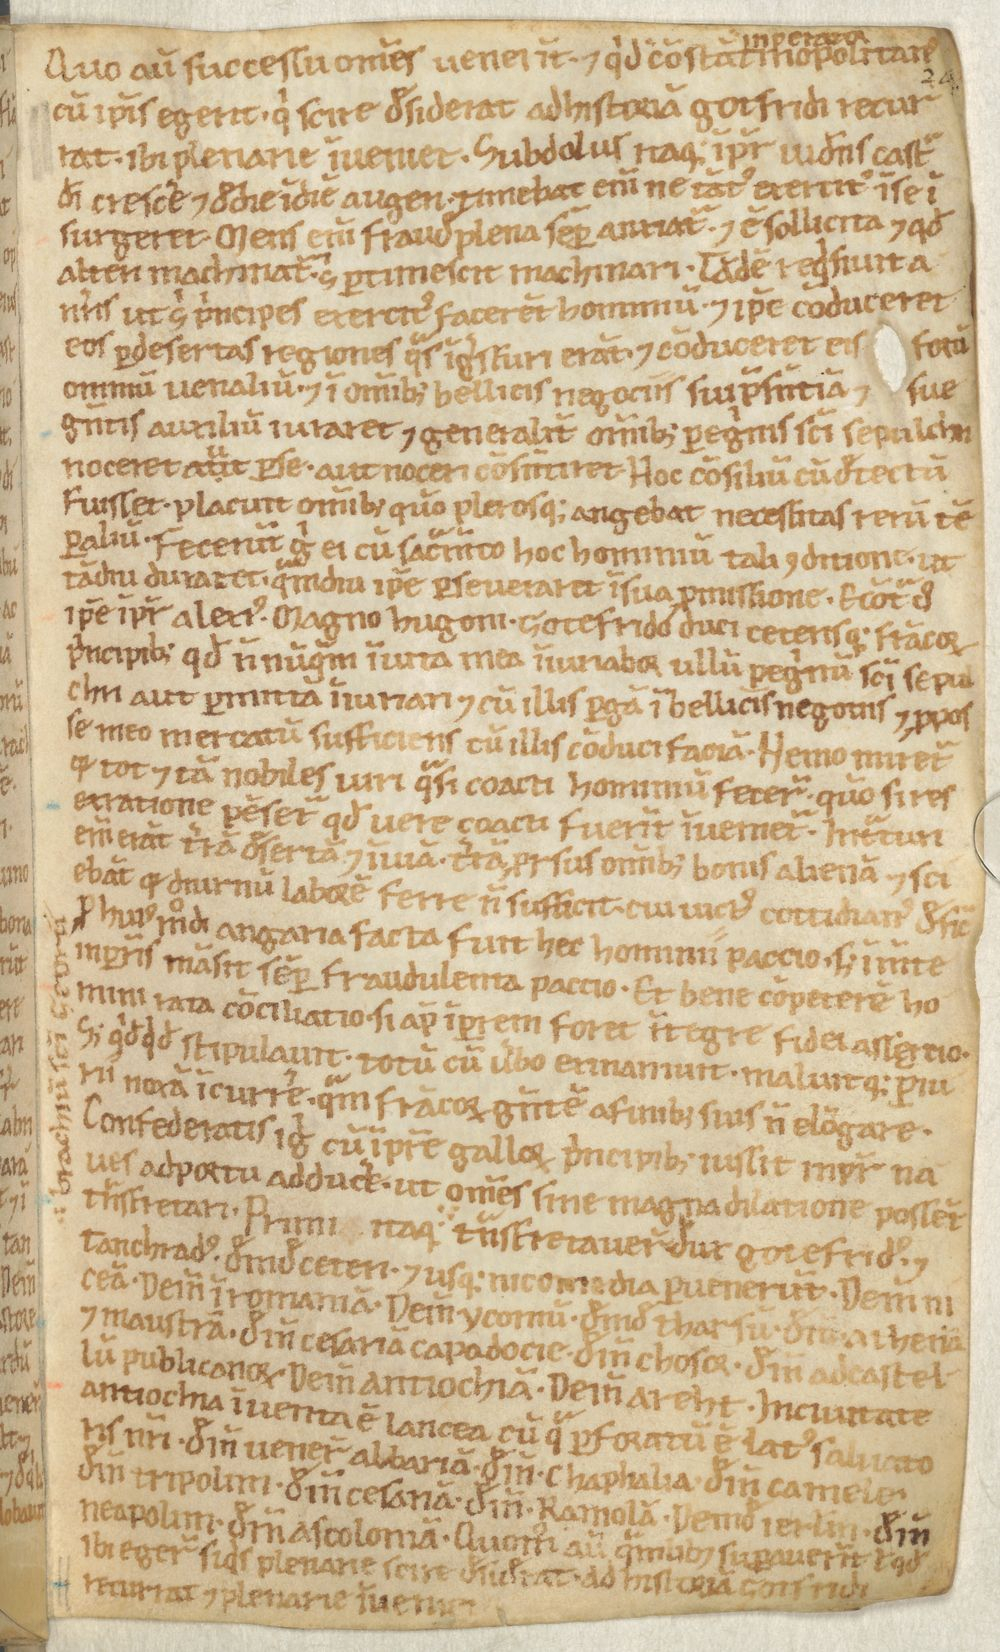 inperatoꝛe
Quo aū successu om̄es uener̄t. ⁊ qͥd cōstātinopolitan᷒
24
cū ip̄is egerit. qͥ scire d̄siderat ad historiā gotfridi recur
rat. ibi plenarie īueniet. Subdolus itaq; īpr̄ uidn̄s cast
crescē ⁊ de die ī diē augeri. timebat eni ne tāt᷒ exercit᷒ ī se ī
surgeret. Mens eni fraud̄ plena sēp anxiat̄. ⁊ ē sollicita ⁊ qd̄
alteri machinat̄. s̄ ꝑtimescit machinari. Tādē reqͥsiuit a
nr̄is ut s̄ pͥncipes exercit᷒ facerēt hominiū. ⁊ ip̄e cōduceret
eos ꝑ desertas regiones qͣs īgͥssuri erāt. ⁊ cōduceret eis fotū
omniū uenaliū. ⁊ ī om̄ib; bellicis negociis sui p̄sn̄tia ⁊ sue
gn̄tis auxiliū iuraret ⁊ generalit̄ om̄ib; peregͥnis sc̄i sepulchri
noceret aut ꝑ se. aut noceri cōsn̄tiret. Hoc cōsiliū cū d̄tectū
fuisset. placuit om̄ib; quo plerosq; angebat necessitas rerū tē
ꝑaliū. Fecerūt gͥ ei cū sacͣm̄to hoc hominiū tali ꝯditione. ut
tādiu duraret. qͣmdiu ip̄e ꝑseueraret ī sua ꝓmissione.
ip̄e īpr̄ alexi᷒. Magno hugoni. Gotefrido duci ceterisq; frācoꝝ
pͥncipib; qd̄ n̄ nūqͣm īuita mea īuriaboꝛ ullū peregͥnū sc̄i sepul
chri aut ꝑmittā īiuriari ⁊ cū illis ꝑgā ī bellicis negotiis ⁊ ꝓ pos
se meo mercatū sufficiens cū illis cōduci faciā. Nemo miret̄
qͥ tot ⁊ tā nobiles uiri qͣsi coacti hominiū fecer̄. quo si res
ex ratione pēset̄ qd̄ uere coacti fuerīt īueniet̄. Intͣturi
eni erāt t̄rā desertā ⁊ īuiā. t̄rā ꝓrsus om̄ib; bonis alienā ⁊ sci
ebāt qͥ diurnū laboꝛē ferre n̄ sufficit. cui uict᷒ cottidian᷒ d̄fic̄
P hui᷒ mōi angaria facta fuit hec hominii paccio.
mansit sēp fraudulenta paccio. Et bene cōpeterē ho
mini rata cōciliatio si ap̄ īpr̄em foret ītegre fidei assertio.
S; qͥdqͥd stipulauit. totū cū ūbo emanauit. maluitq; ꝑiu
rii notā īcurrē. qͣm frācoꝝ gn̄tē a finib; suis n̄ elōgare.
Confederatis igͥ cū īpr̄e galloꝝ pͥncipib; iussit inpr̄ na
ues ad poꝛtū adducē. ut om̄es sine magna dilatione possēt
trāsfretari. Primi itaq; trāsfretauer̄ dux gotefrid᷒. ⁊
Tanchrad᷒. deind̄ ceteri. ⁊ usq; nicomedia ꝑuenerūt. Dein ni
ceā. Dein ī romaniā. Dein ycomū. deind̄ tharsū. dein. athenā
⁊ maustrā. dein cesariā capadocie. dein chosoꝛ. dein ad castel
lū publicanoꝝ. Dein antiochiā. Dein areht. In ciuitate
antiochia īuenta ē lancea cū qͣ ꝑforatū ē lat᷒ saluato
ris nr̄i. dein uener̄ albariā. dein chaphalia. dein camele.
dein tripolim. dein cesariā. dein. Ramolā. Deind̄ ierl̄m. dein
neapolim. dein ascoloniā. Quom̄ aū qͣntib; suꝑauerīt ⁊ qd̄
ibi eger̄ siqͥs plenarie scire d̄siderat. ad historiā gotfridi
recurrat ⁊ plenarie īueniet
brachiū sc̄i georgii